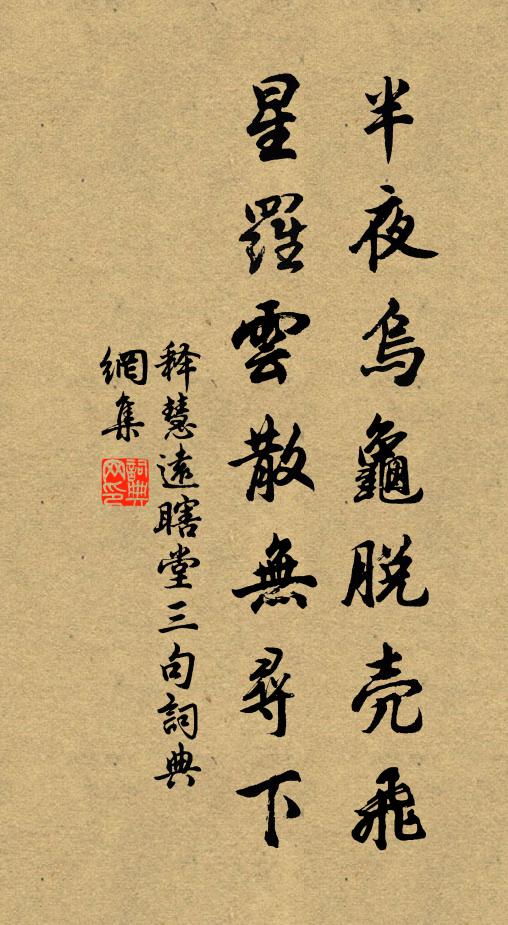 半夜烏龜脱壳飛
星羅雲散無尋下
释慧遠瞎堂三句詞典
網集
詞典
网印